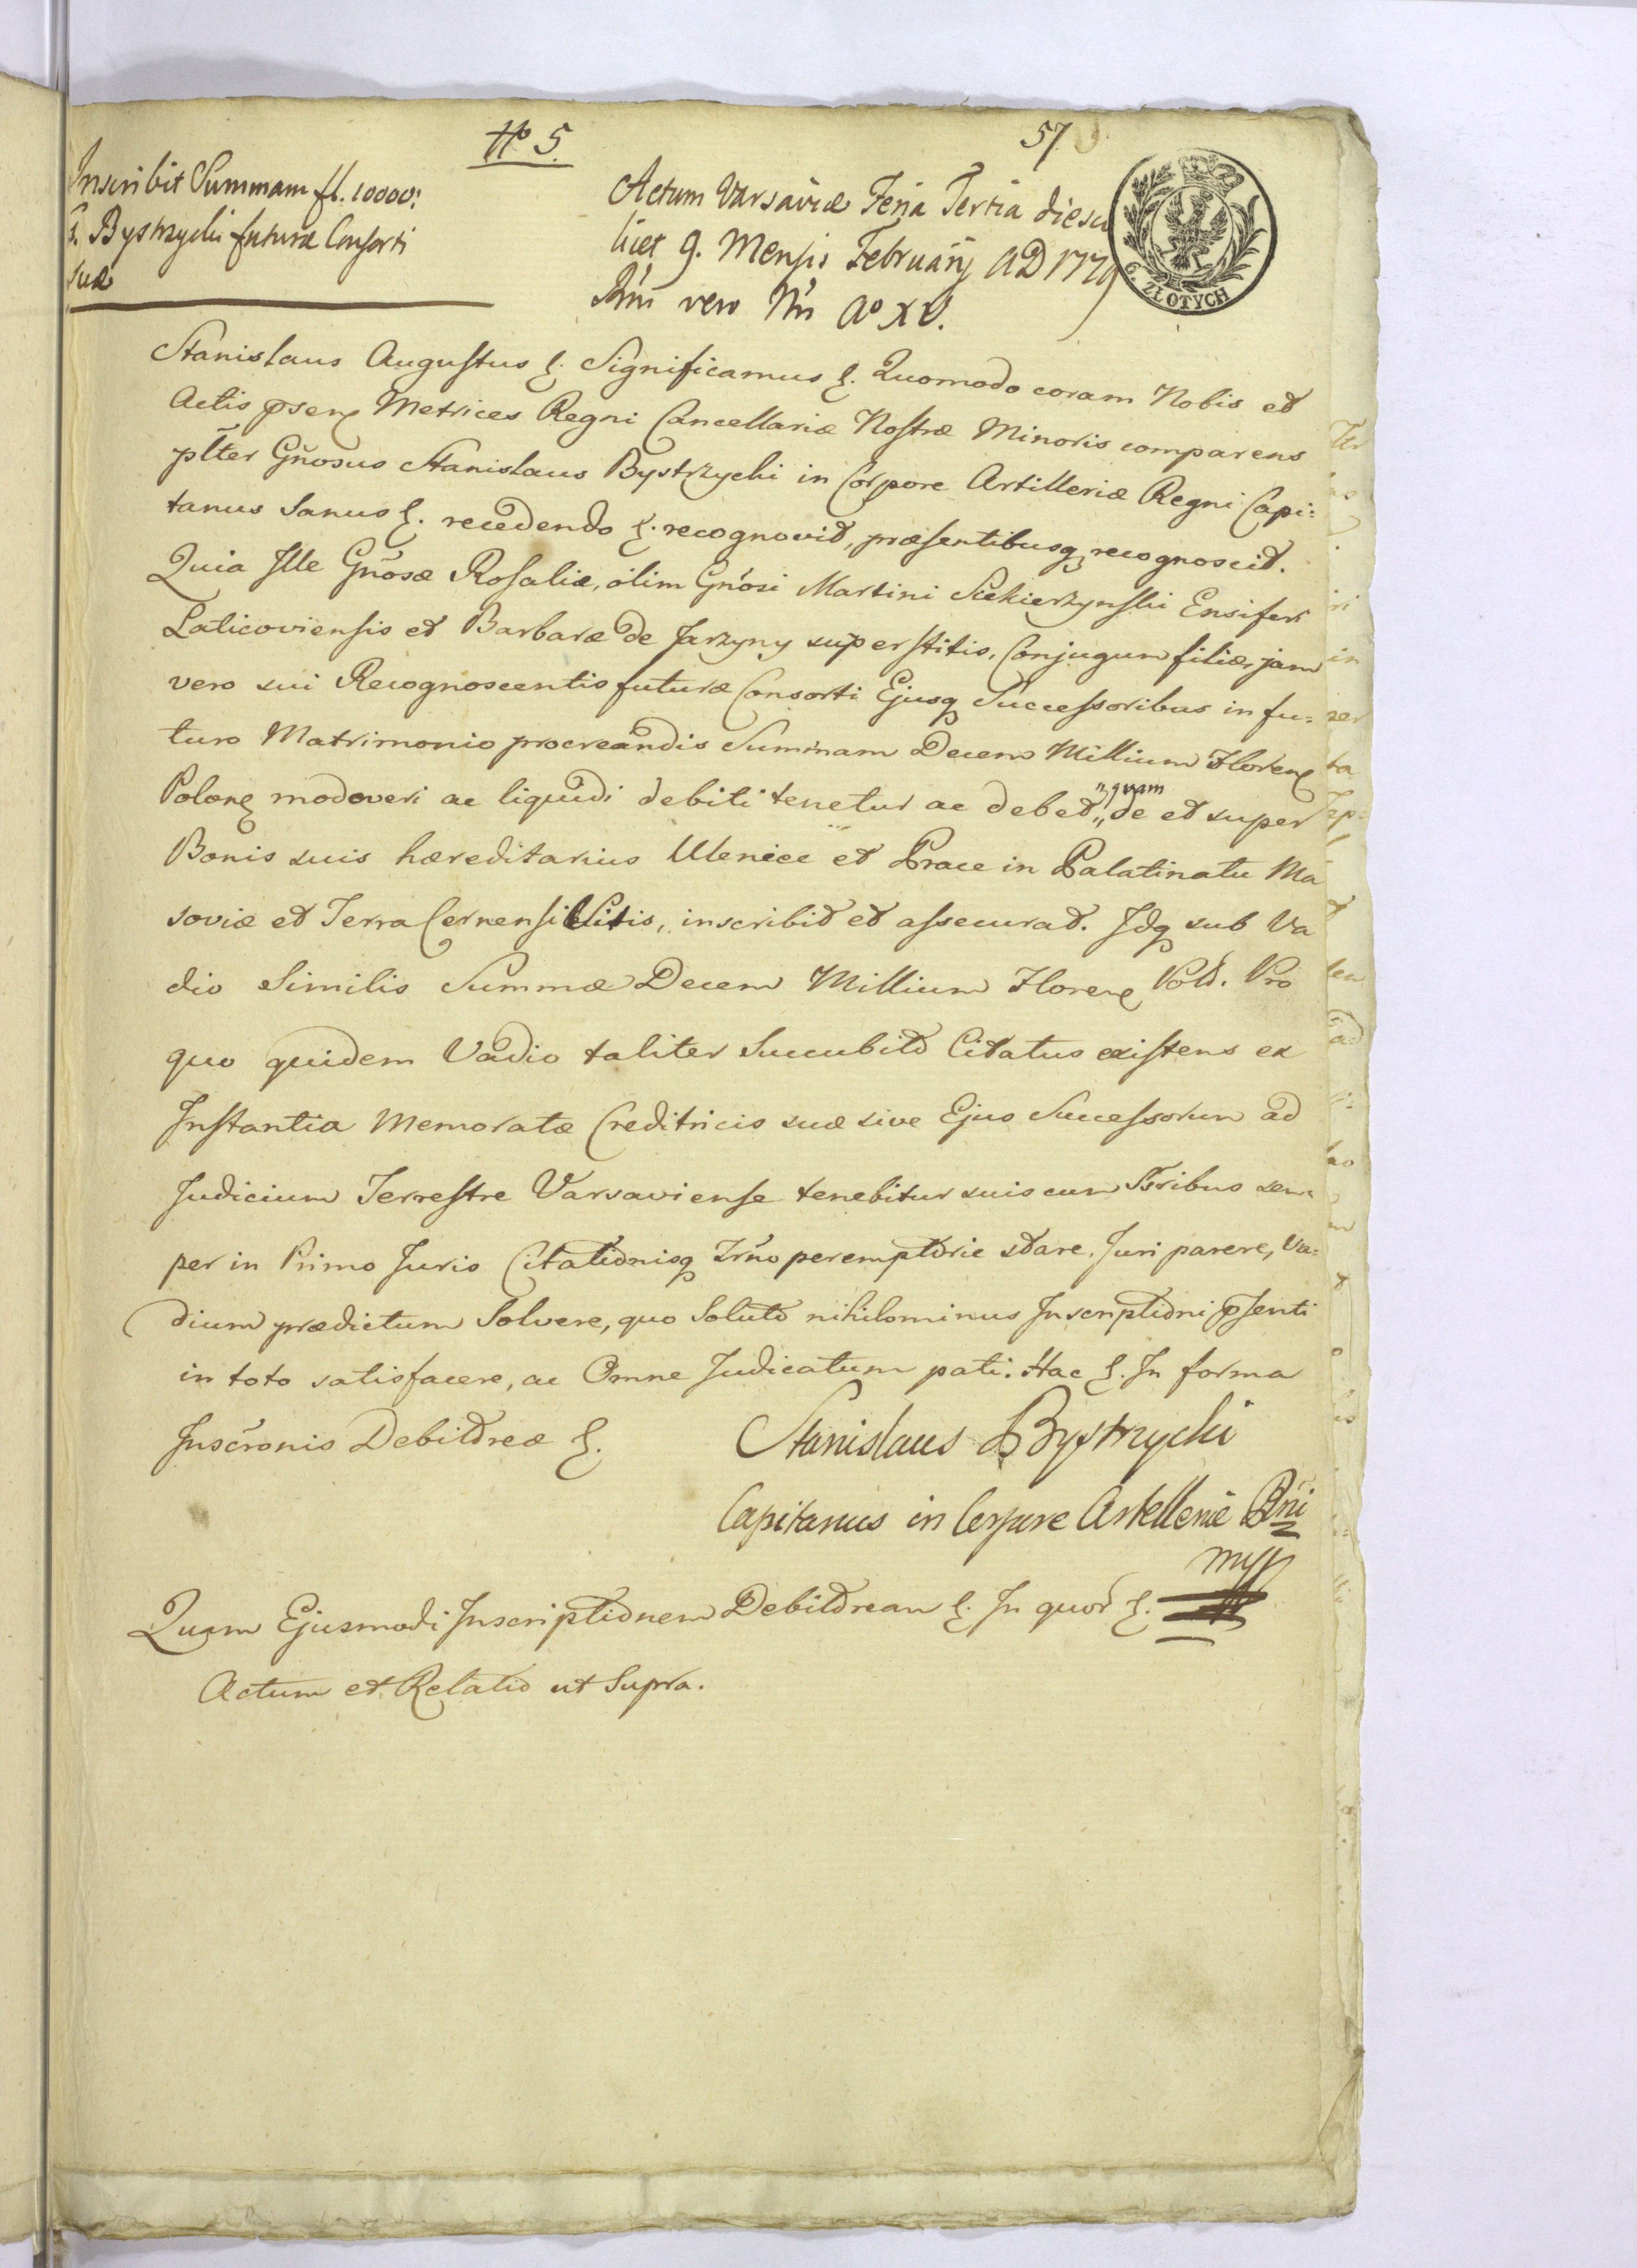 No 5.
57
Inscribit Summam fl. 10000:
G. Bystrzycki futuræ Consorti
suæ
Actum Varsaviæ Feria Tertia die sci
licet 9. Mensis Februarij AD 1779
Rni vero Nri Aº XV.
6. ZŁOTYCH
Stanislaus Augustus &. Significamus &. Quomodo coram Nobis et
Actis psen Metrices Regni Cancellariæ Nostræ Minoris comparens
plter Gnosus Stanislaus Bystrzycki in Corpore Artilleriæ Regni Capi:
tanus Sanus &. recedendo &. recognovit, præsentibusq recognoscit.
Quia Ille Gnosæ Rosaliæ, olim Gnosi Martini Siekierzynski Ensiferi
Laticoviensis et Barbaræ de Jarzyny superstitis, Conjugum filiæ, jam
vero sui Recognoscentis futuræ Consorti Ejusq Successoribus in fu=
turo Matrimonio procreandis Summam Decem Millium Floren
Polon modo veri ac liquidi debiti tenetur ac debet, quam de et super
Bonis suis hæreditarius Ulenice et Prace in Palatinatu Ma
soviæ et Terra Cernensi Sitis, inscribit et assecurat. Idq sub Va
dio Similis Summæ Decem Millium Floren Pold. Pro
quo quidem Vadio taliter Succubito Citatus existens ex
Instantia Memoratæ Creditricis suæ sive Ejus Successorum ad
Judicium Terrestre Varsaviense tenebitur suis cum Ssribus sem:
per in Primo Juris Citationisq Trno peremptorie stare, Juri parere, Va:
dium prædictum Solvere, quo Soluto nihilominus Inscriptioni psenti
in toto satisfacere, ac Omne Judicatum pati. Hac &. In forma
Inscronis Debitoreæ &.
Stanislaus Bystrzycki
Capitanus in Corpore Artillerie Rni
mpp
Quam Ejusmodi Inscriptionem Debitoream &. In quor &.
Actum et Relatio ut Supra.